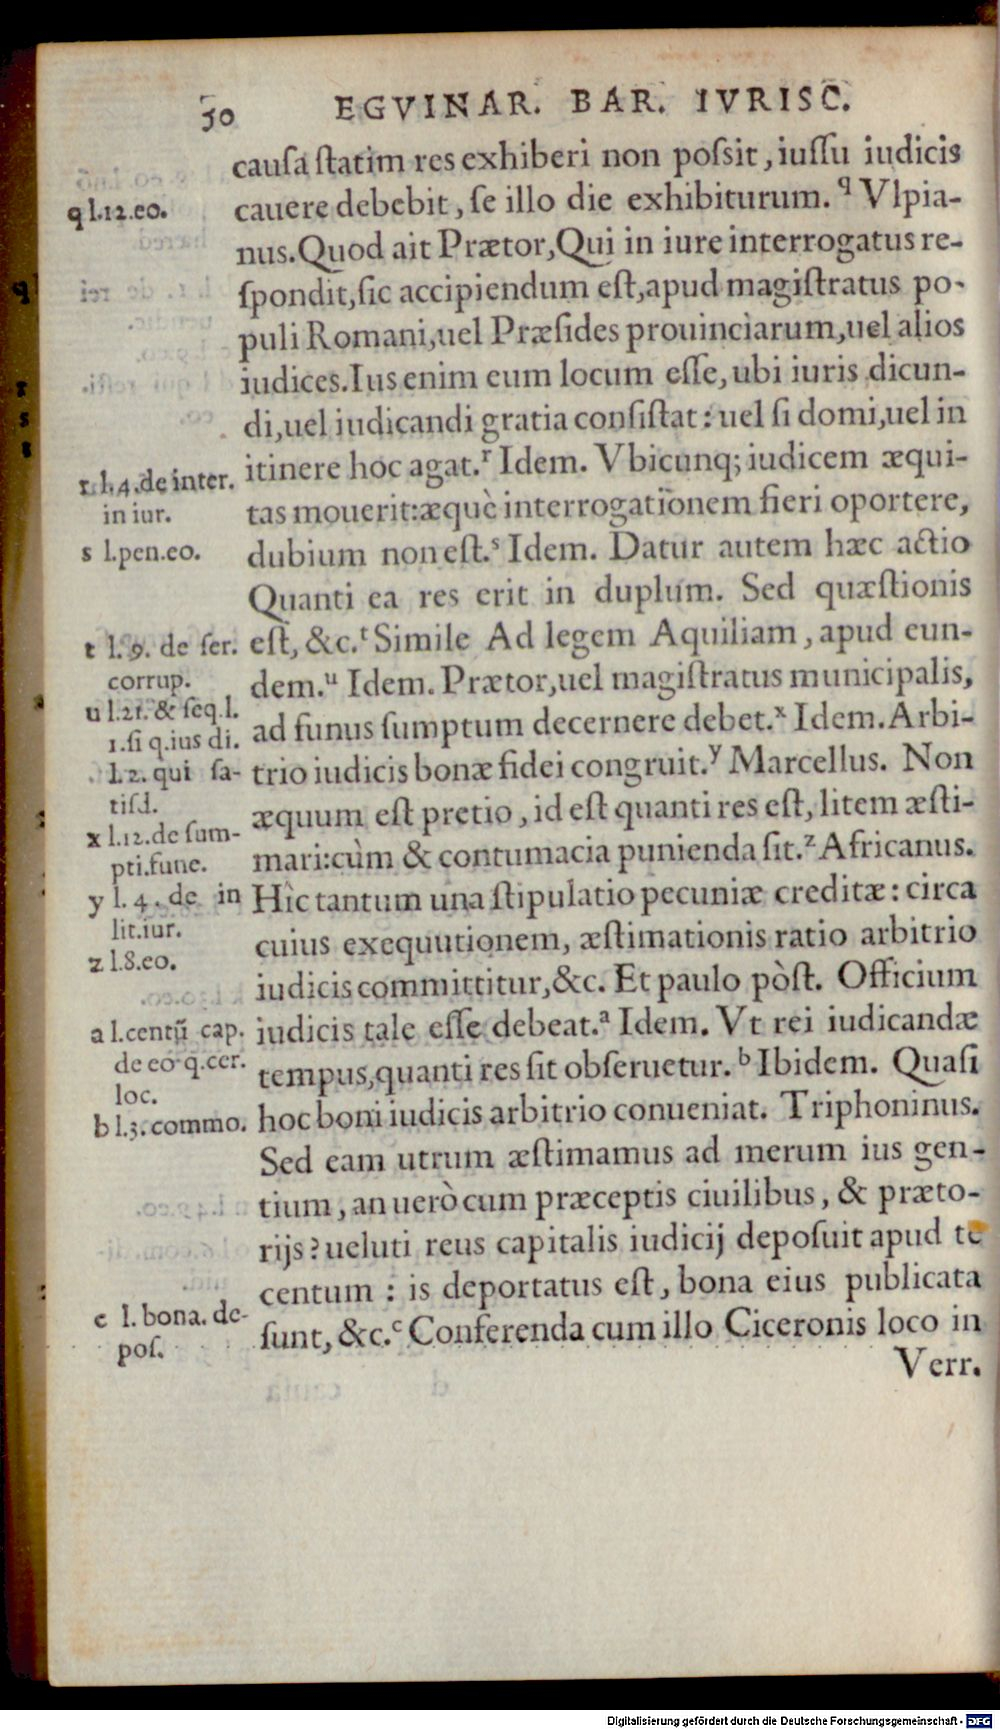 50 EGVINAR. BAR. IVRISC.
causa statim res exhiberi non possit, iussu iudicis
cauere debebit, se illo die exhibiturum. q Vlpia-
nus. Quod ait Prætor, Qui in iure interrogatus re-
spondit, sic accipiendum est, apud magistratus po-
puli Romani, uel Præsides prouinciarum, uel alios
iudices. Ius enim eum locum esse, ubi iuris dicun-
di, uel iudicandi gratia consistat: uel si domi, uel in
itinere hoc agat. r Idem. Vbicunq; iudicem æqui-
tas mouerit: æquè interrogationem fieri oportere,
dubium non est. s Idem. Datur autem hæc actio
Quanti ea res erit in duplum. Sed quæstionis
est, &c. t Simile Ad legem Aquiliam, apud eun-
dem. u Idem. Prætor, uel magistratus municipalis,
ad funus sumptum decernere debet. x Idem. Arbi-
trio iudicis bonæ fidei congruit. y Marcellus. Non
æquum est pretio, id est quanti res est, litem æsti-
mari: cùm & contumacia punienda sit. z Africanus.
Hîc tantum una stipulatio pecuniæ creditæ: circa
cuius exequutionem, æstimationis ratio arbitrio
iudicis committitur, &c. Et paulo pòst. Officium
iudicis tale esse debeat. a Idem. Vt rei iudicandæ
tempus, quanti res sit obseruetur. b Ibidem. Quasi
hoc boni iudicis arbitrio conueniat. Triphoninus.
Sed eam utrum æstimamus ad merum ius gen-
tium, an uerò cum præceptis ciuilibus, & præto-
rijs? ueluti reus capitalis iudicij deposuit apud te
centum: is deportatus est, bona eius publicata
sunt, &c. c Conferenda cum illo Ciceronis loco in
Verr.
q l.12.eo.
r l.4.de inter.
in iur.
s l.pen.eo.
t l.9. de ser.
corrup.
u l.21. & seq.l.
1.si q.ius di.
l.2. qui sa-
tisd.
x l.12.de sum-
pti.fune.
y l.4. de in
lit.iur.
z l.8.eo.
a l.centũ cap.
de eo q.cer.
loc.
b l.3.commo.
c l. bona. de-
pos.
Digitalisierung gefördert durch die Deutsche Forschungsgemeinschaft - DFG